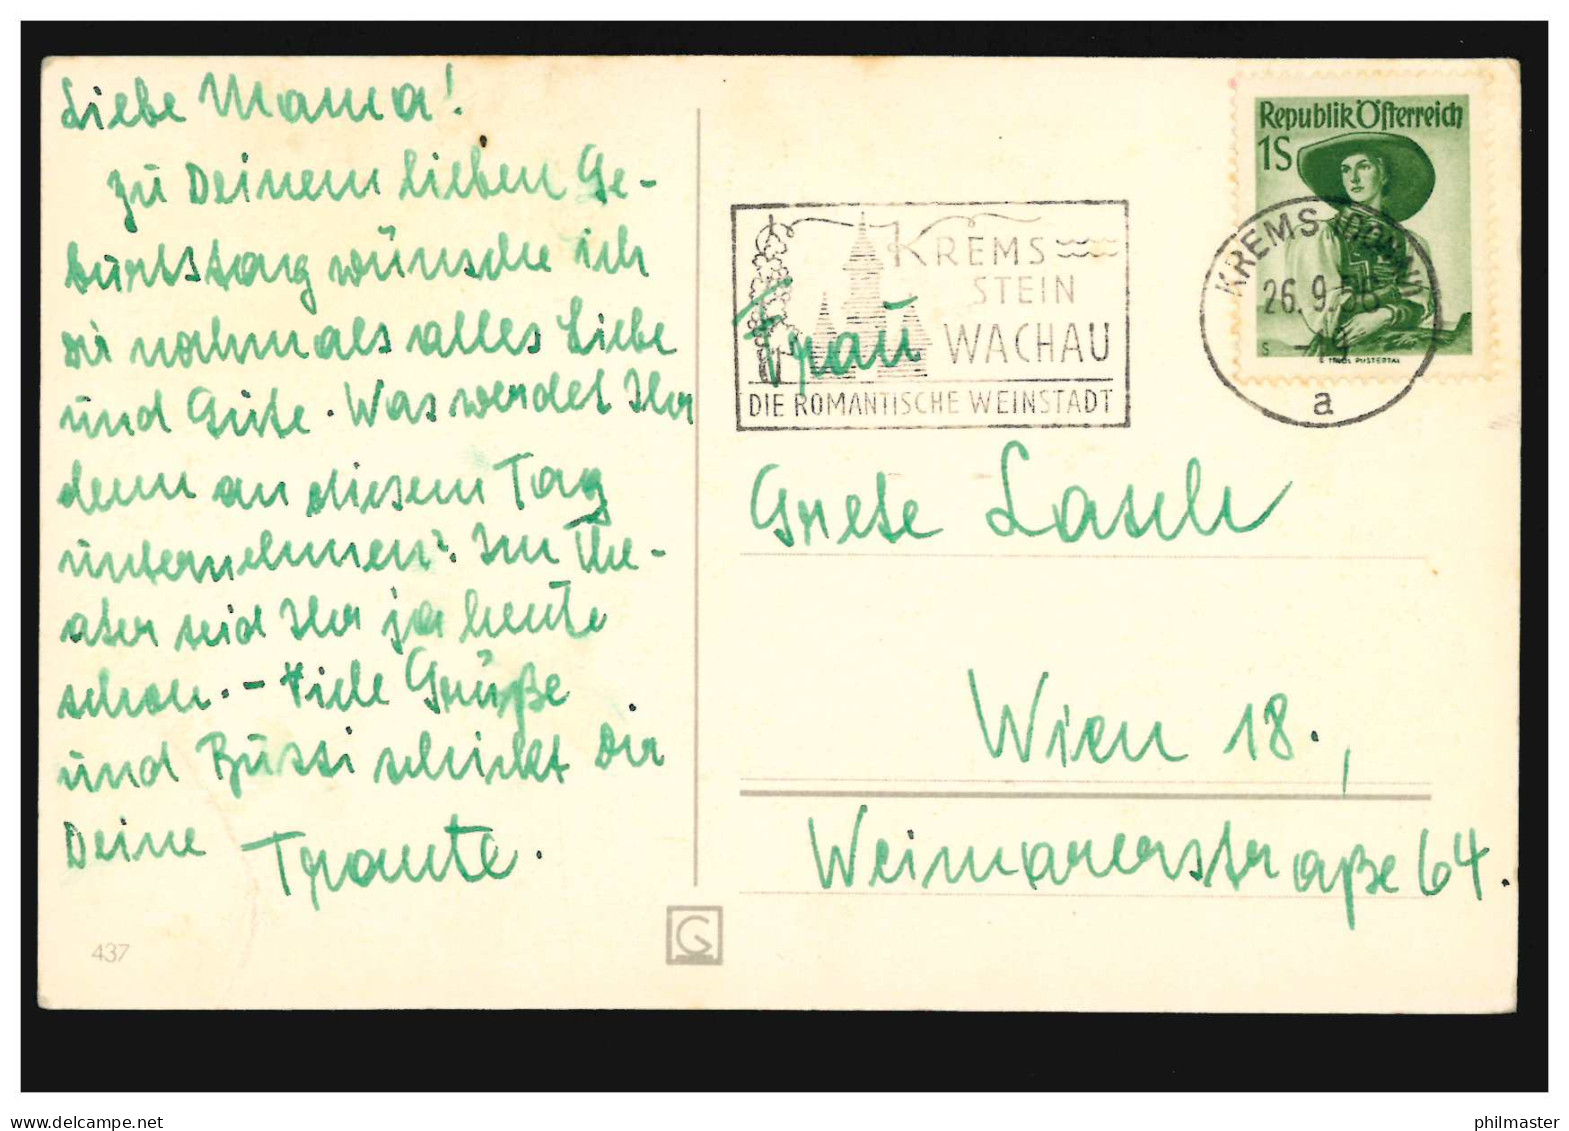 Liebe Mama!
zu Deinem lieben Ge-
burtstag wünsche ich
Dir nochmals alles Liebe
und Gute. Was werdet Ihr
denn an diesem Tag
unternehmen? Im The-
ater seid Ihr ja heute
schon. - Viele Grüße
und Bussi schickt Dir
Deine Traute.
437
Republik Österreich
1S
TIROL PUSTERTAL
KREMS (DONAU)
26. 9. 56
a
KREMS
STEIN
WACHAU
DIE ROMANTISCHE WEINSTADT
Frau
Grete Lasch
Wien 18.,
Weimarerstraße 64.
delcampe.net
philmaster